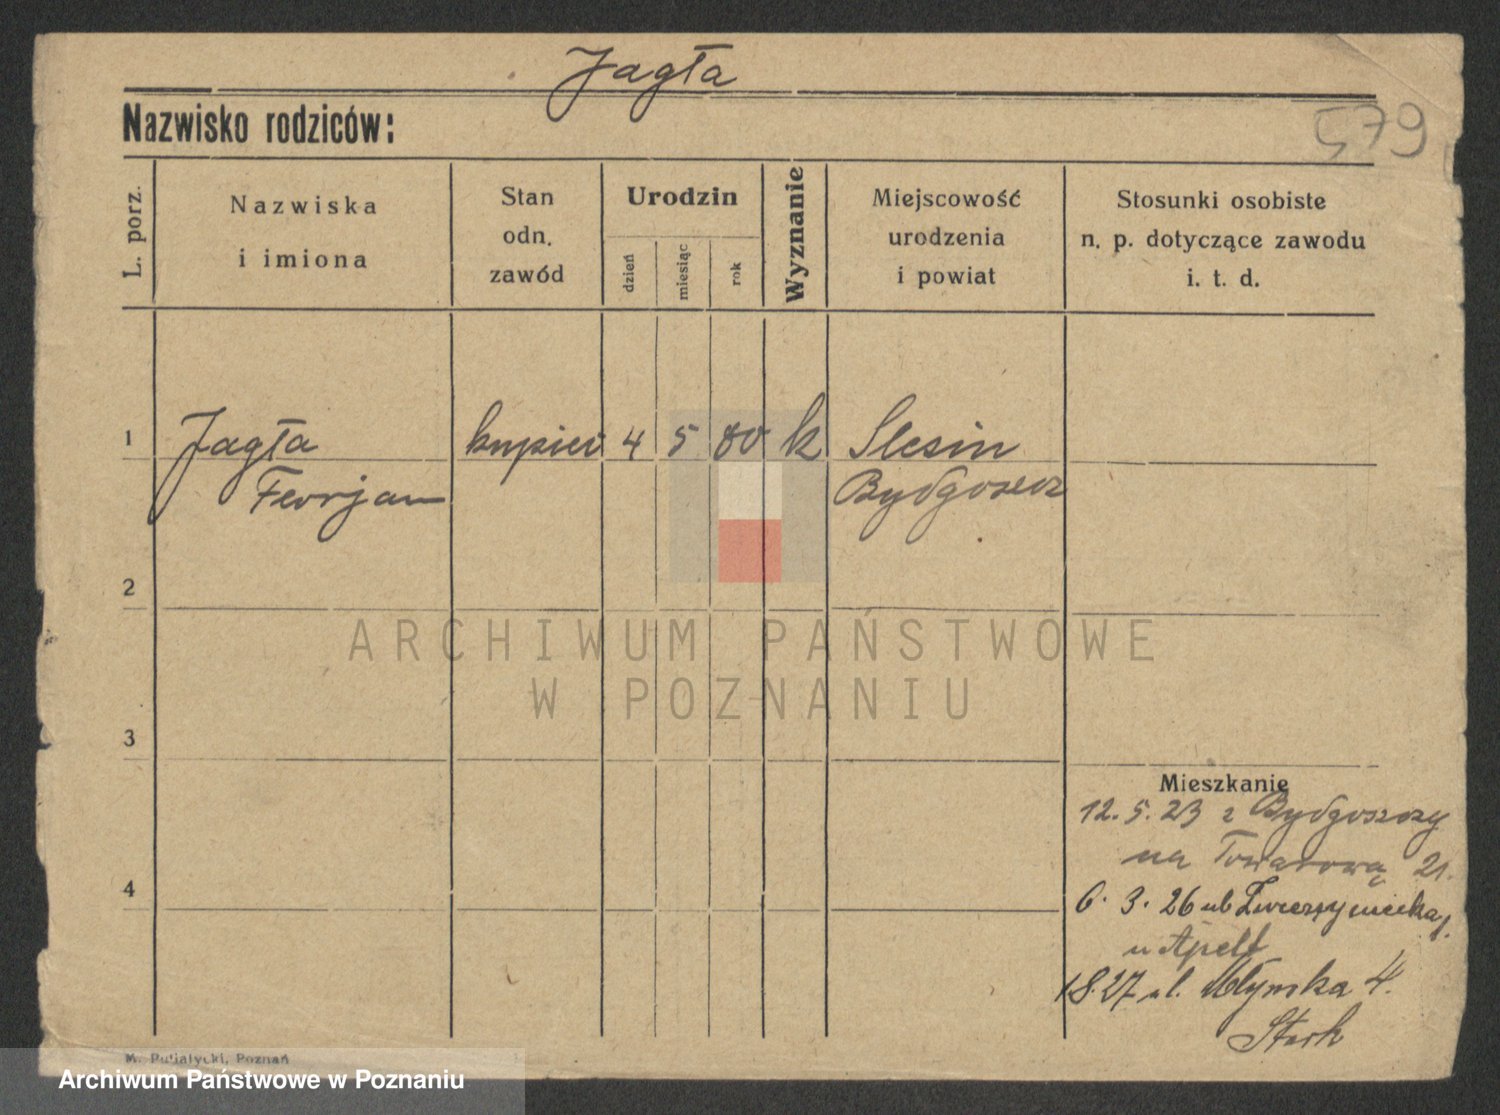 Jagła
Nazwisko rodziców:
579
L. porz.
Nazwiska
i imiona
Stan
odn.
zawód
Urodzin
dzień
miesiąc
rok
Wyznanie
Miejscowość
urodzenia
i powiat
Stosunki osobiste
n. p. dotyczące zawodu
i. t. d.
1
Jagła
Florjan
kupiec
4
5
80
k
Slesin
Bydgoszcz
2
ARCHIWUM PAŃSTWOWE
W POZNANIU
3
Mieszkanie
12.5.23 z Bydgoszczy
na Towarową 21.
4
6.3.26 ul Zwierzyniecka 1.
u Apelt
1 8.27 ul. Młyńska 4.
Stark
M. Putiatycki, Poznań
Archiwum Państwowe w Poznaniu